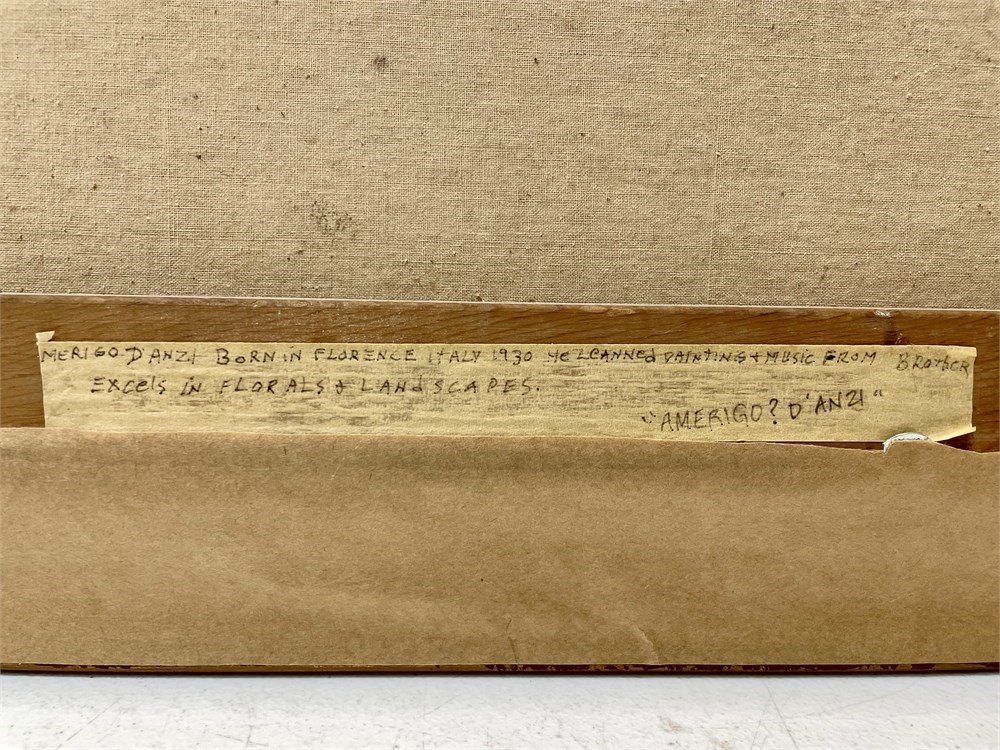 MERIGO D'ANZI BORN IN FLORENCE ITALY 1930 He LEANNed PAINTING + MUSIC FROM BROTHER
EXCElS IN FLORALS & LANDSCAPES.
"AMERIGO? D'ANZI"